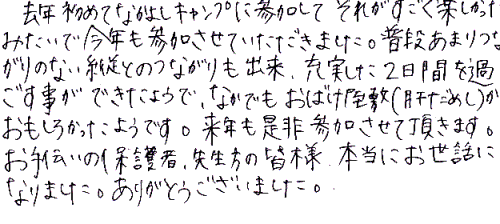 去年初めてなかよしキャンプに参加して それがすごく楽しかった
みたいで今年も参加させていただきました。普段あまりつな
がりのない縦とのつながりも出来、充実した2日間を過
ごす事ができたようで、なかでもおばけ屋敷(肝だめし)が
おもしろかったようです。来年も是非参加させて頂きます。
お手伝いの保護者、先生方の皆様 本当にお世話に
なりました。ありがとうございました。